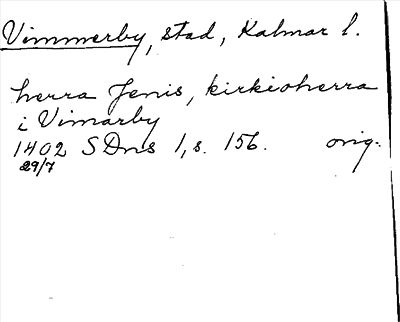 Vimmerby, stad, Kalmar l.
herra Jenis, kirkioherra
i Vimarby
1402 SDns 1, s. 156. orig.
29/7